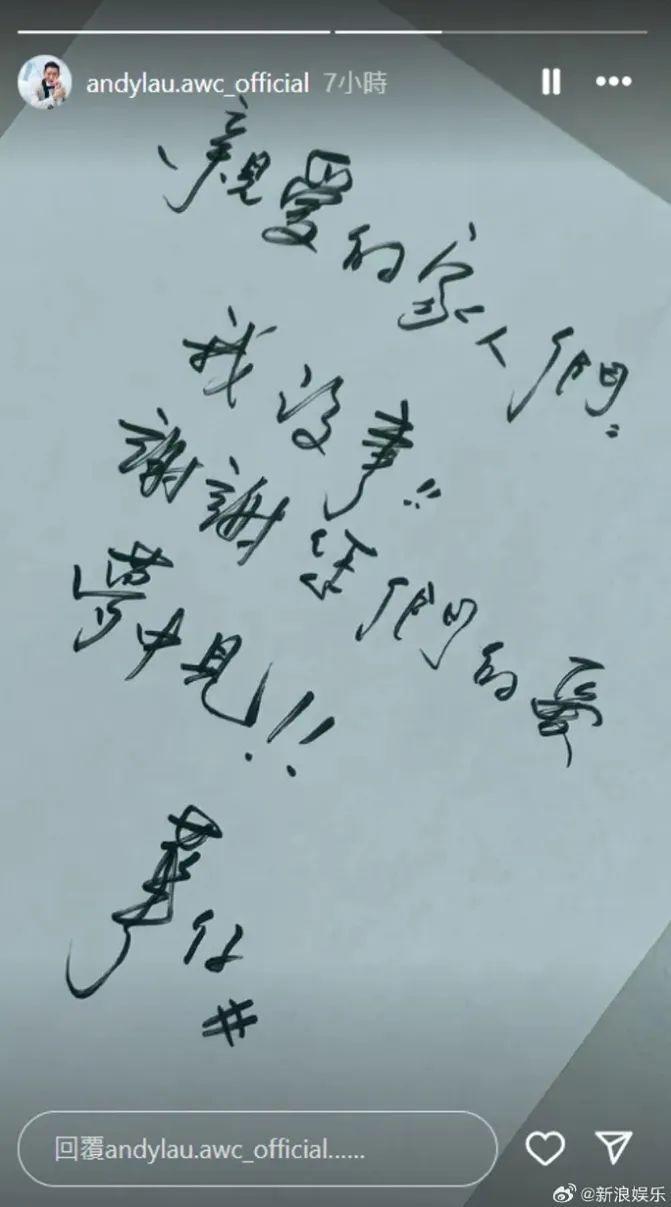 andylau.awc_official 7小時
親愛的家人們:
我沒事!!
謝謝您們的愛
夢中見!!
華仔
#
回覆andylau.awc_official......
@新浪娱乐